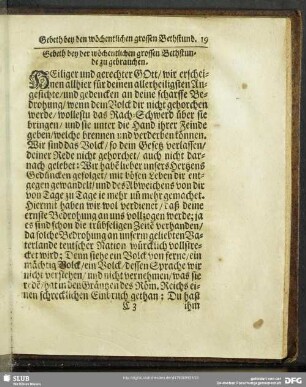 Gebeth bey den wöchentlichen grossen Bethstund. 19
Gebeth bey der wöchentlichen grossen Bethstun-
de zu gebrauchen.
HEiliger und gerechter GOtt/ wir erschei-
nen allhier für deinen allerheiligsten An-
gesichte/ und gedencken an deine scharffe Be-
drohung/ wenn dein Volck dir nicht gehorchen
werde/ wollestu das Rach-Schwerd über sie
bringen/ und sie unter die Hand ihrer Feinde
geben/ welche brennen und verderben können.
Wir sind das Volck/ so dem Gesetz verlassen/
deiner Rede nicht gehorchet/ auch nicht dar-
nach gelebet: Wir habē lieber unsers Hertzens
Gedüncken gefolget/ mit bösen Leben dir ent-
gegen gewandelt/ und des Abweichens von dir
von Tage zu Tage je mehr uñ mehr gemachet.
Hiermit haben wir wol verdienet/ daß deine
ernste Bedrohung an uns vollzogen werde; ja
es sind schon die trübseligen Zeitē verhanden/
da solche Bedrohung an unserm geliebten Va-
terlande teutscher Nation würcklich vollstre-
cket wird; Denn siehe ein Volck von ferne/ ein
mächtig Volck/ ein Volck/ dessen Sprache wir
nicht verstehen/ und nicht vernehmen/ was sie
redē/ hat in den Gräntzen des Röm. Reichs ei-
nen schrecklichen Einbruch gethan: Du hast
ihm
SLUB
Wir führen Wissen.